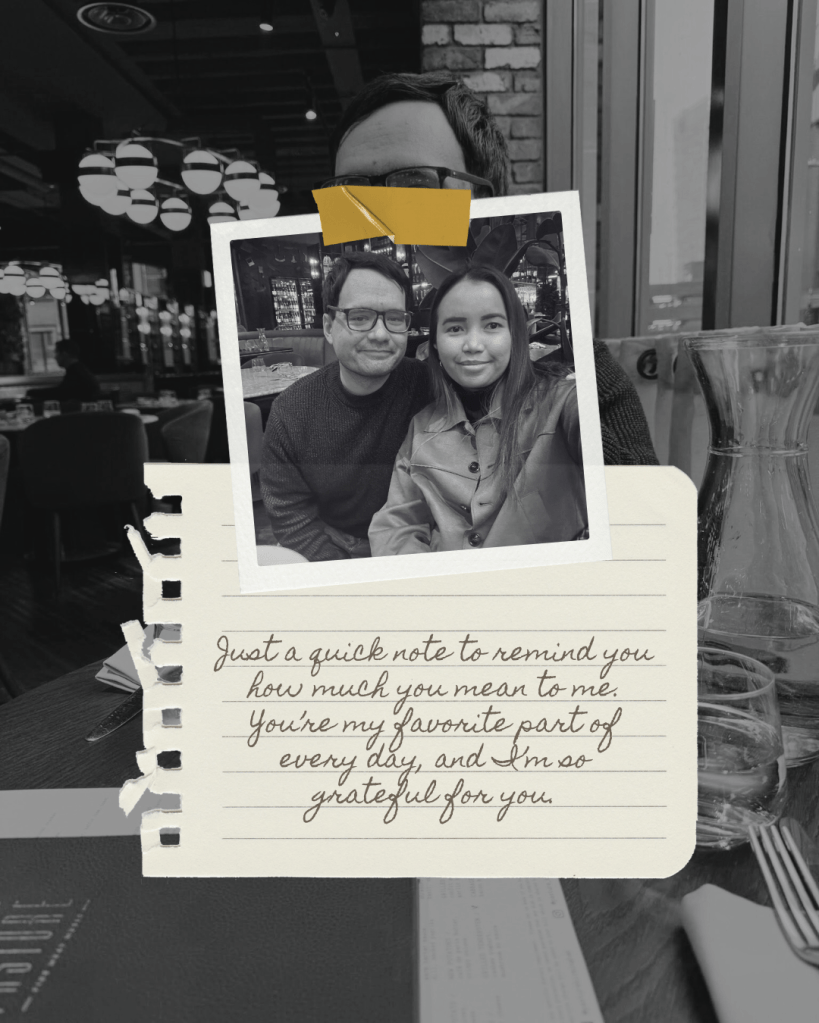 Just a quick note to remind you
how much you mean to me.
You're my favorite part of
every day, and I'm so
grateful for you.